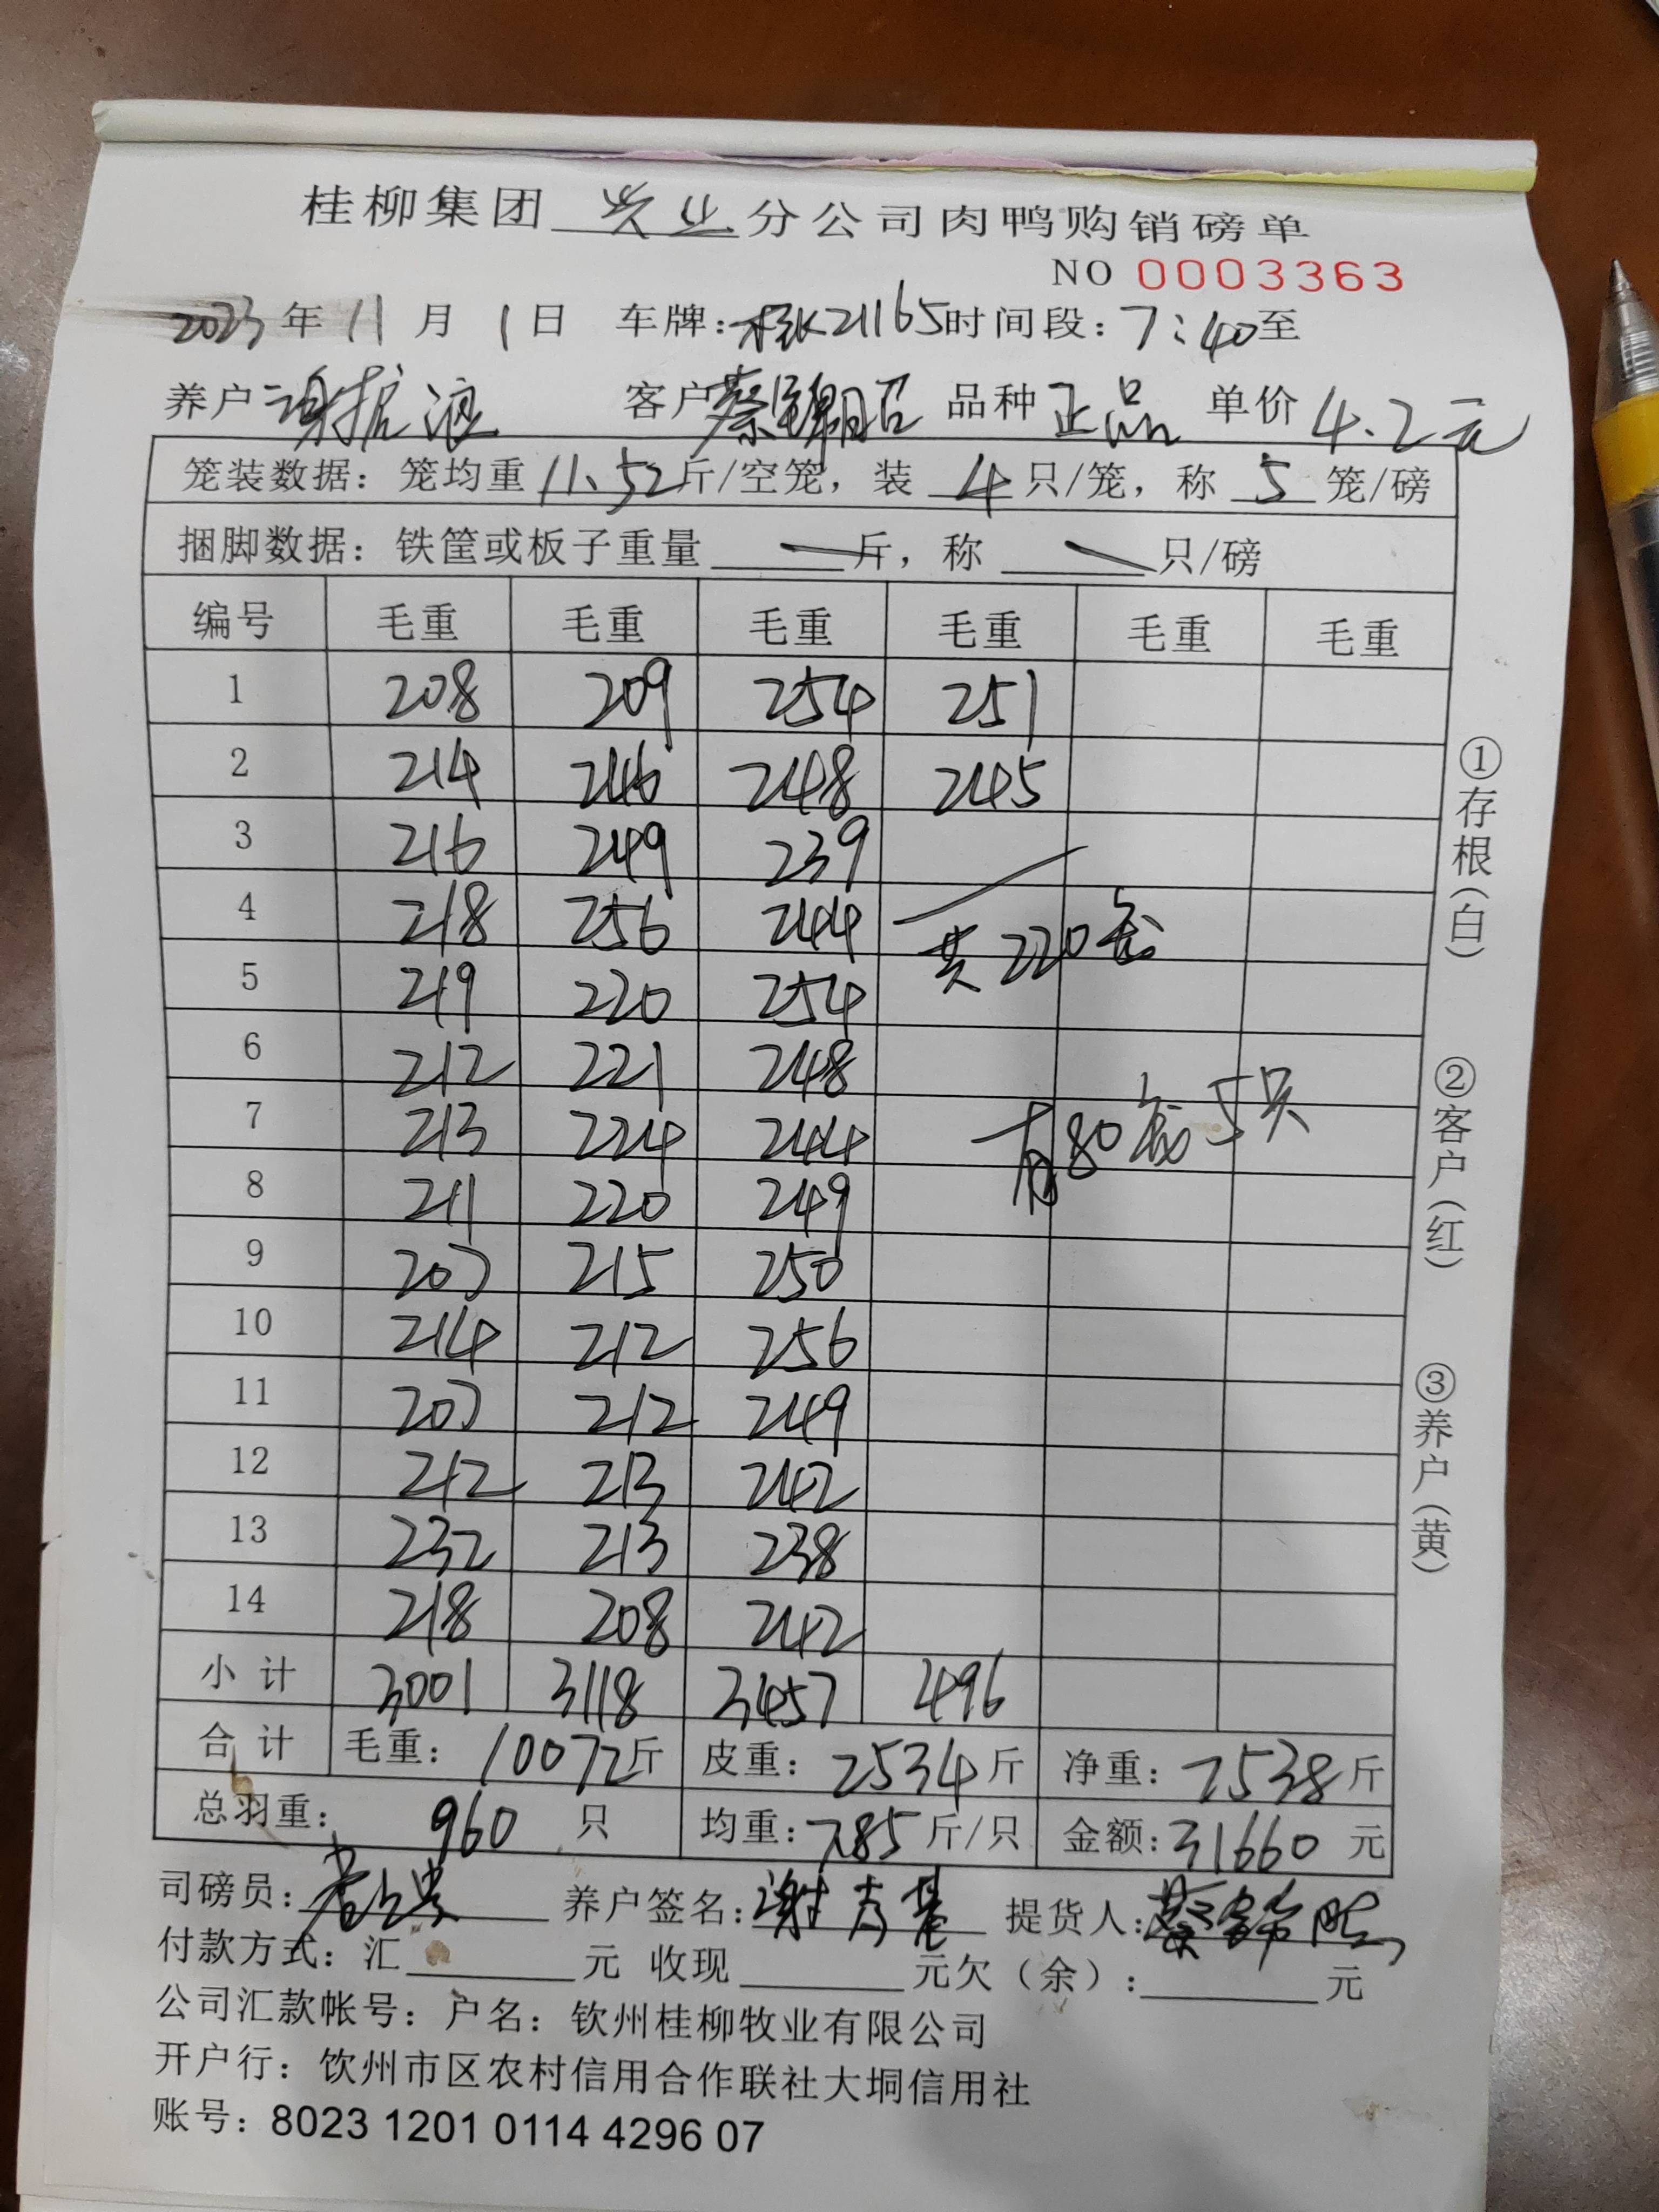 桂柳集团 兴业 分公司肉鸭购销磅单
NO 0003363
2023 年 11 月 1 日 车牌: 桂K21165 时间段: 7:40 至
养户 谢振液 客户 蔡锦昭 品种 正品 单价 4.2元
笼装数据: 笼均重 11.52 斤/空笼, 装 4 只/笼, 称 5 笼/磅
捆脚数据: 铁筐或板子重量 — 斤, 称 — 只/磅
编号 毛重 毛重 毛重 毛重 毛重 毛重
1 208 209 254 251
2 214 246 248 245
3 216 249 239
4 218 256 244
共220笼
5 219 220 254
6 212 221 248
7 213 224 244
有80笼5只
8 211 220 249
9 207 215 250
10 214 212 256
11 207 212 249
12 212 213 242
13 232 213 238
14 218 208 242
小计 3001 3118 3457 496
合计 毛重: 10072斤 皮重: 2534斤 净重: 7538斤
总羽重: 960 只 均重: 7.85斤/只 金额: 31660 元
司磅员: 养户签名: 谢 提货人: 蔡锦
付款方式: 汇 元 收现 元欠(余): 元
公司汇款帐号: 户名: 钦州桂柳牧业有限公司
开户行: 钦州市区农村信用合作联社大垌信用社
账号: 8023 1201 0114 4296 07
①存根(白)
②客户(红)
③养户(黄)